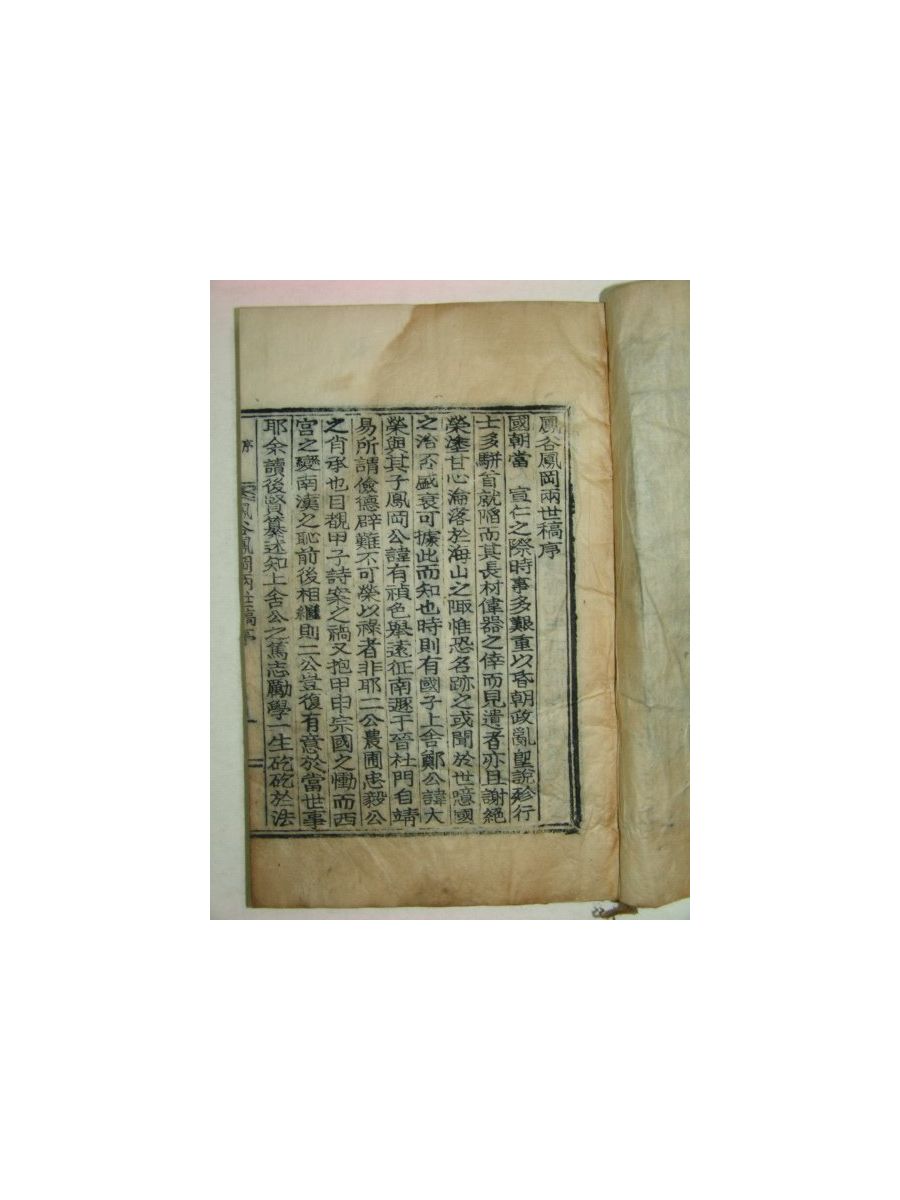 鳳谷鳳岡兩世稿序
國朝當 宣仁之際時事多艱重以昏朝政亂聖說殄行
士多騈首就陷而其長材偉器之倖而見遺者亦且謝絕
榮塗甘心淪落於海山之陬惟恐名跡之或聞於世噫國
之治否盛衰可據此而知也時則有國子上舍鄭公諱大
榮與其子鳳岡公諱有禎色擧遠征南遯于晉杜門自靖
易所謂儉德辟難不可榮以祿者非耶二公農圃忠毅公
之肖承也目覩甲子詩案之禍又抱甲申宗國之慟而西
宮之變南漢之恥前後相繼則二公豈復有意於當世事
耶余讀後賢纂述知上舍公之篤志勵學一生矻矻於法
序 鳳谷鳳岡兩世稿序 一